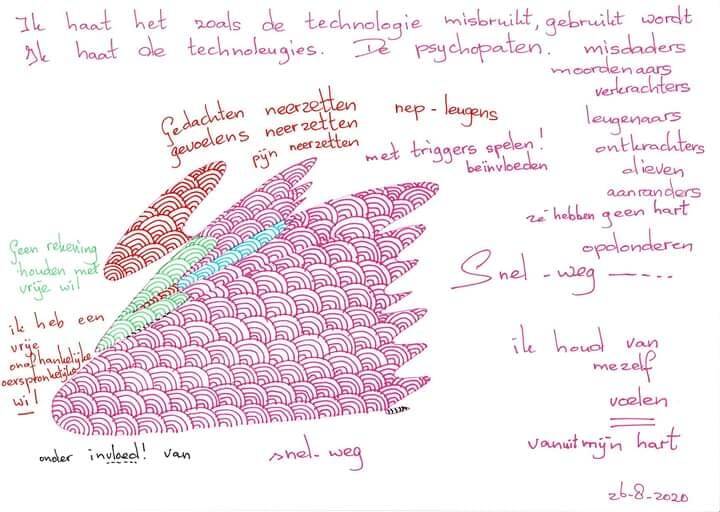 Ik haat het zoals de technologie misbruikt, gebruikt wordt
Ik haat de technoleugies. De psychopaten. misdaders
moordenaars
verkrachters
leugenaars
ontkrachters
dieven
aanranders
ze hebben geen hart
opdonderen
Snel - weg - - ...
Gedachten neerzetten
gevoelens neerzetten
pijn neerzetten
nep - leugens
met triggers spelen!
beïnvloeden
Geen rekening
houden met
vrije wil
ik heb een
vrije
onafhankelijke
oerspronkelijke
wil
onder invloed! van
snel - weg
ik houd van
mezelf
voelen
vanuit mijn hart
26-8-2020